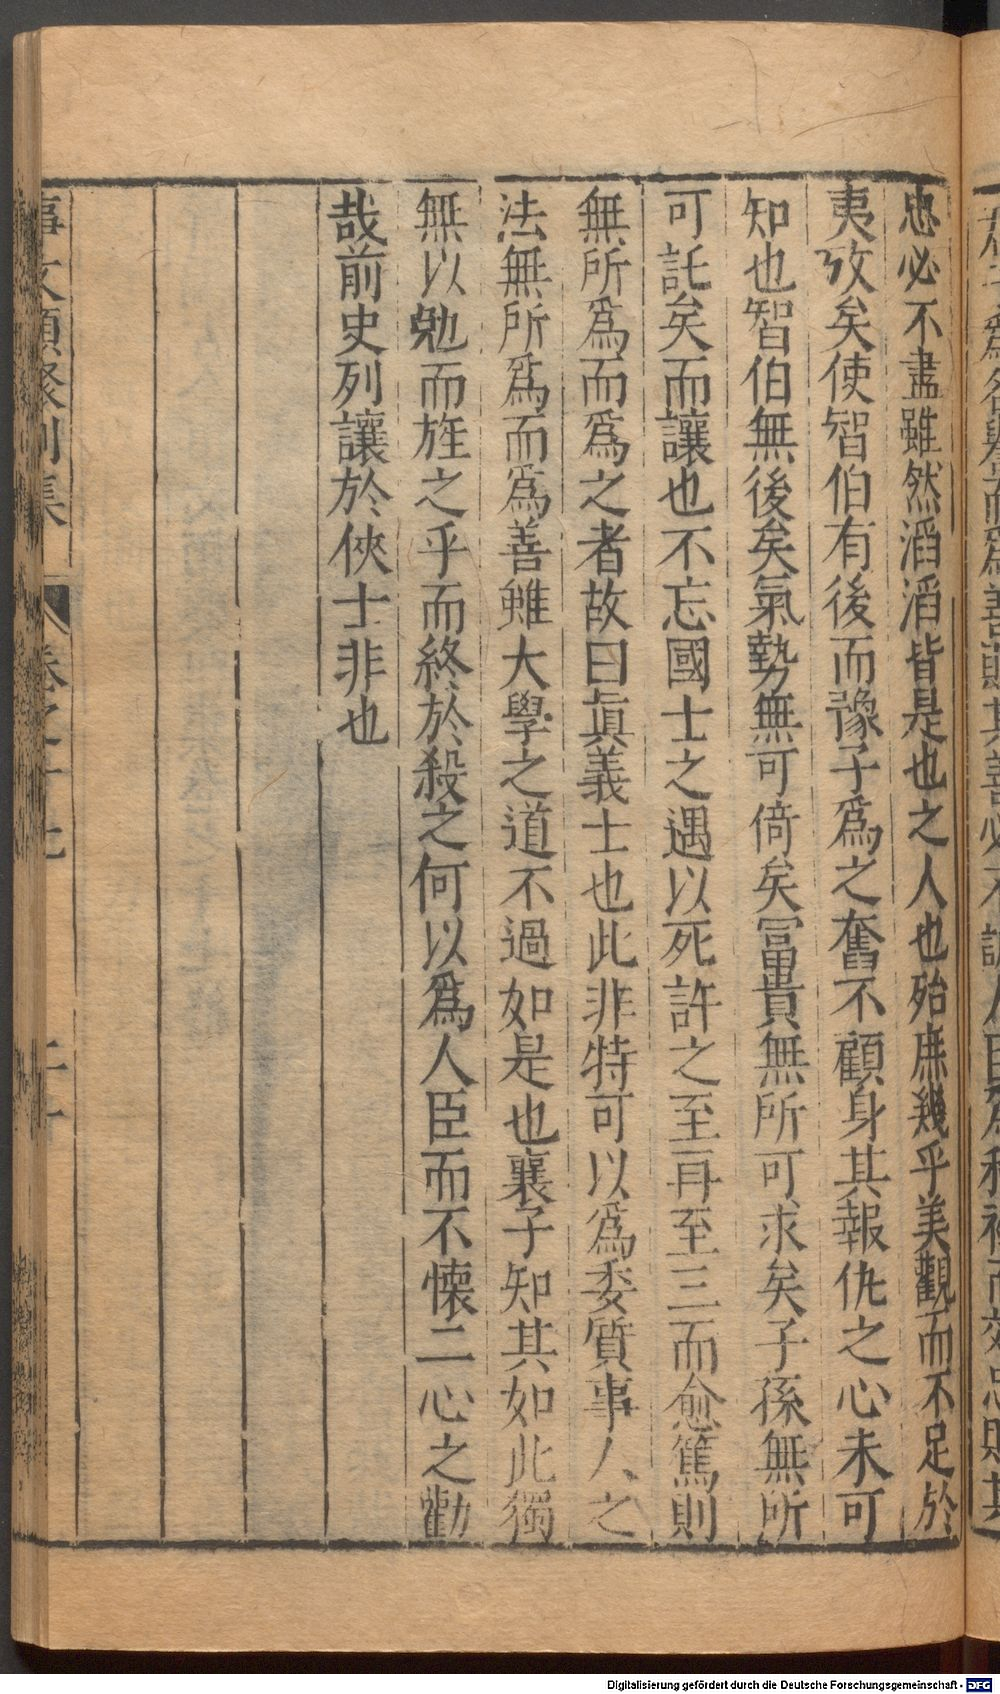 忠必不盡雖然滔滔皆是也之人也殆庶幾乎美觀而不足於
夷攷矣使智伯有後而豫子爲之奮不顧身其報仇之心未可
知也智伯無後矣氣勢無可倚矣冨貴無所可求矣子孫無所
可託矣而讓也不忘國士之遇以死許之至再至三而愈篤則
無所爲而爲之者故曰眞義士也此非特可以爲委質事人之
法無所爲而爲善雖大學之道不過如是也襄子知其如此獨
無以勉而旌之乎而終於殺之何以爲人臣而不懐二心之勸
哉前史列讓於俠士非也
事文類聚別集 卷之二十七 二十
Digitalisierung gefördert durch die Deutsche Forschungsgemeinschaft - DFG